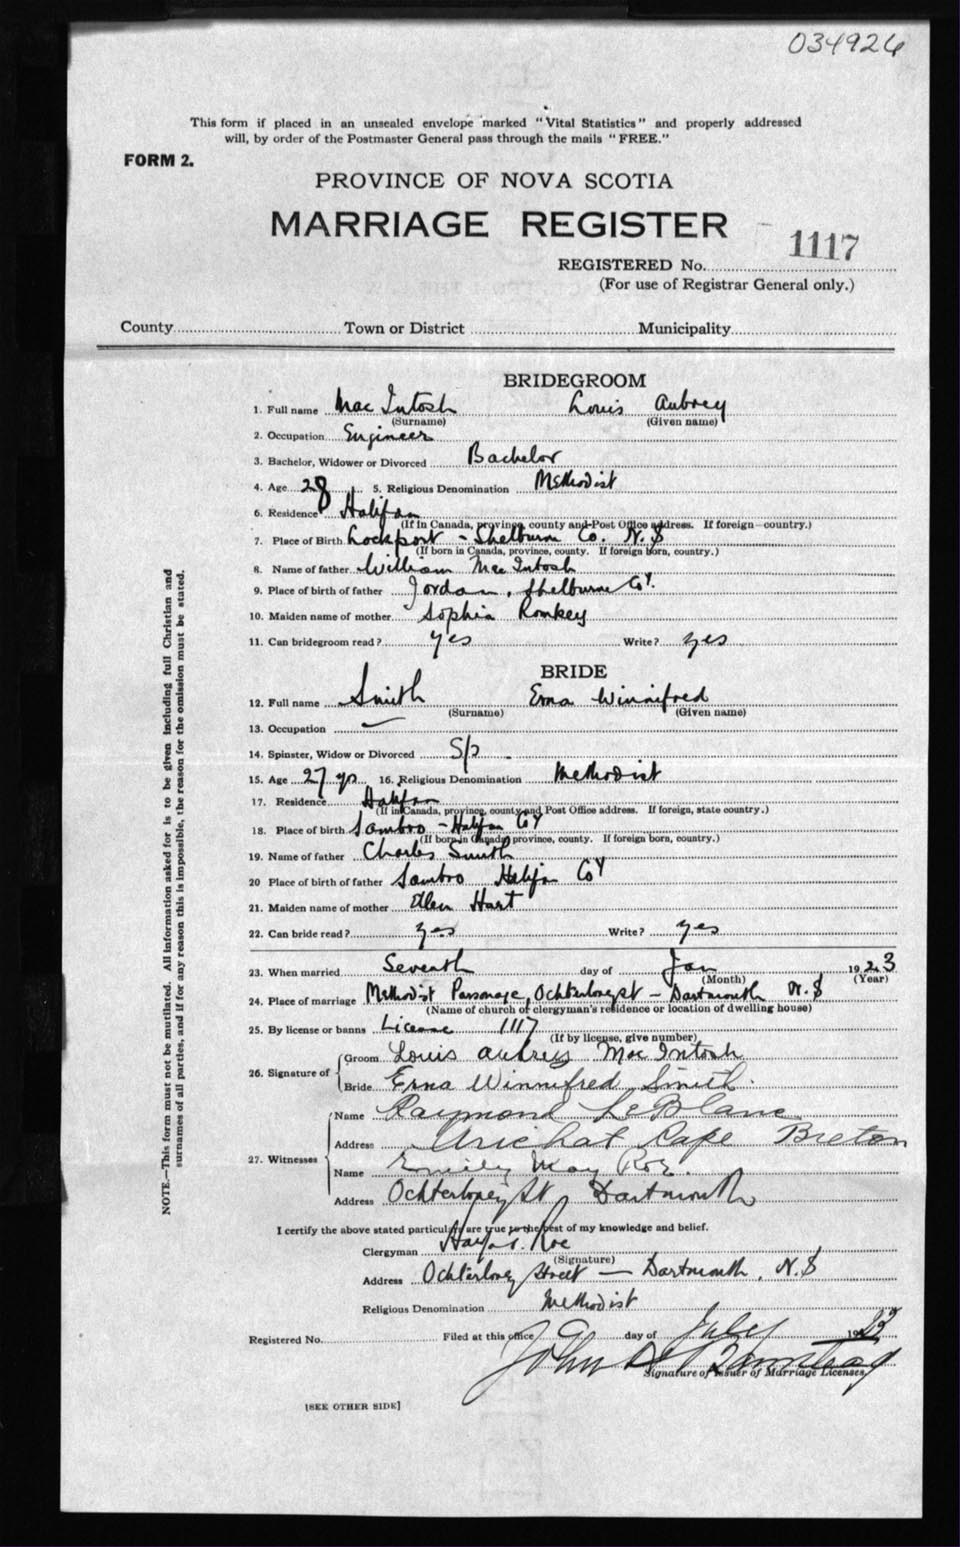 034926
This form if placed in an unsealed envelope marked "Vital Statistics" and properly addressed
will, by order of the Postmaster General pass through the mails "FREE."
FORM 2.
PROVINCE OF NOVA SCOTIA
MARRIAGE REGISTER
1117
REGISTERED No.
(For use of Registrar General only.)
County Town or District Municipality
BRIDEGROOM
1. Full name Mac Intosh Louis Aubrey
(Surname) (Given name)
2. Occupation Engineer
3. Bachelor, Widower or Divorced Bachelor
4. Age 28 5. Religious Denomination Methodist
6. Residence Halifax
(If in Canada, province, county and Post Office address. If foreign—country.)
7. Place of Birth Lockport - Shelburne Co. N.S
(If born in Canada, province, county. If foreign born, country.)
8. Name of father William Mac Intosh
9. Place of birth of father Jordan, Shelburne Coy.
10. Maiden name of mother Sophia Romkey
11. Can bridegroom read? yes Write? yes
BRIDE
12. Full name Smith Erna Winnifred
(Surname) (Given name)
13. Occupation —
14. Spinster, Widow or Divorced S/p
15. Age 27 yrs 16. Religious Denomination Methodist
17. Residence Halifax
(If in Canada, province, county and Post Office address. If foreign, state country.)
18. Place of birth Sambro - Halifax Coy
(If born in Canada, province, county. If foreign born, country.)
19. Name of father Charles Smith
20 Place of birth of father Sambro Halifax Coy
21. Maiden name of mother Ellen Hart
22. Can bride read? yes Write? yes
23. When married Seventh day of Jan 1923
(Month) (Year)
24. Place of marriage Methodist Parsonage, Ochterloney st - Dartmouth N.S
(Name of church or clergyman's residence or location of dwelling house)
25. By license or banns License 1117
(If by license, give number)
26. Signature of
Groom Louis Aubrey Mac Intosh
Bride Erna Winnifred Smith.
27. Witnesses
Name Raymond LeBlanc
Address Arichat Cape Breton
Name Emily May Roe.
Address Ochterloney St Dartmouth
I certify the above stated particulars are true to the best of my knowledge and belief.
Clergyman Roe
(Signature)
Address Ochterloney Street — Dartmouth, N.S
Religious Denomination Methodist
Registered No. Filed at this office 9 day of July 1923
John
Signature of Issuer of Marriage Licenses
[SEE OTHER SIDE]
NOTE.—This form must not be mutilated. All information asked for is to be given including full Christian and
surnames of all parties, and if for any reason this is impossible, the reason for the omission must be stated.